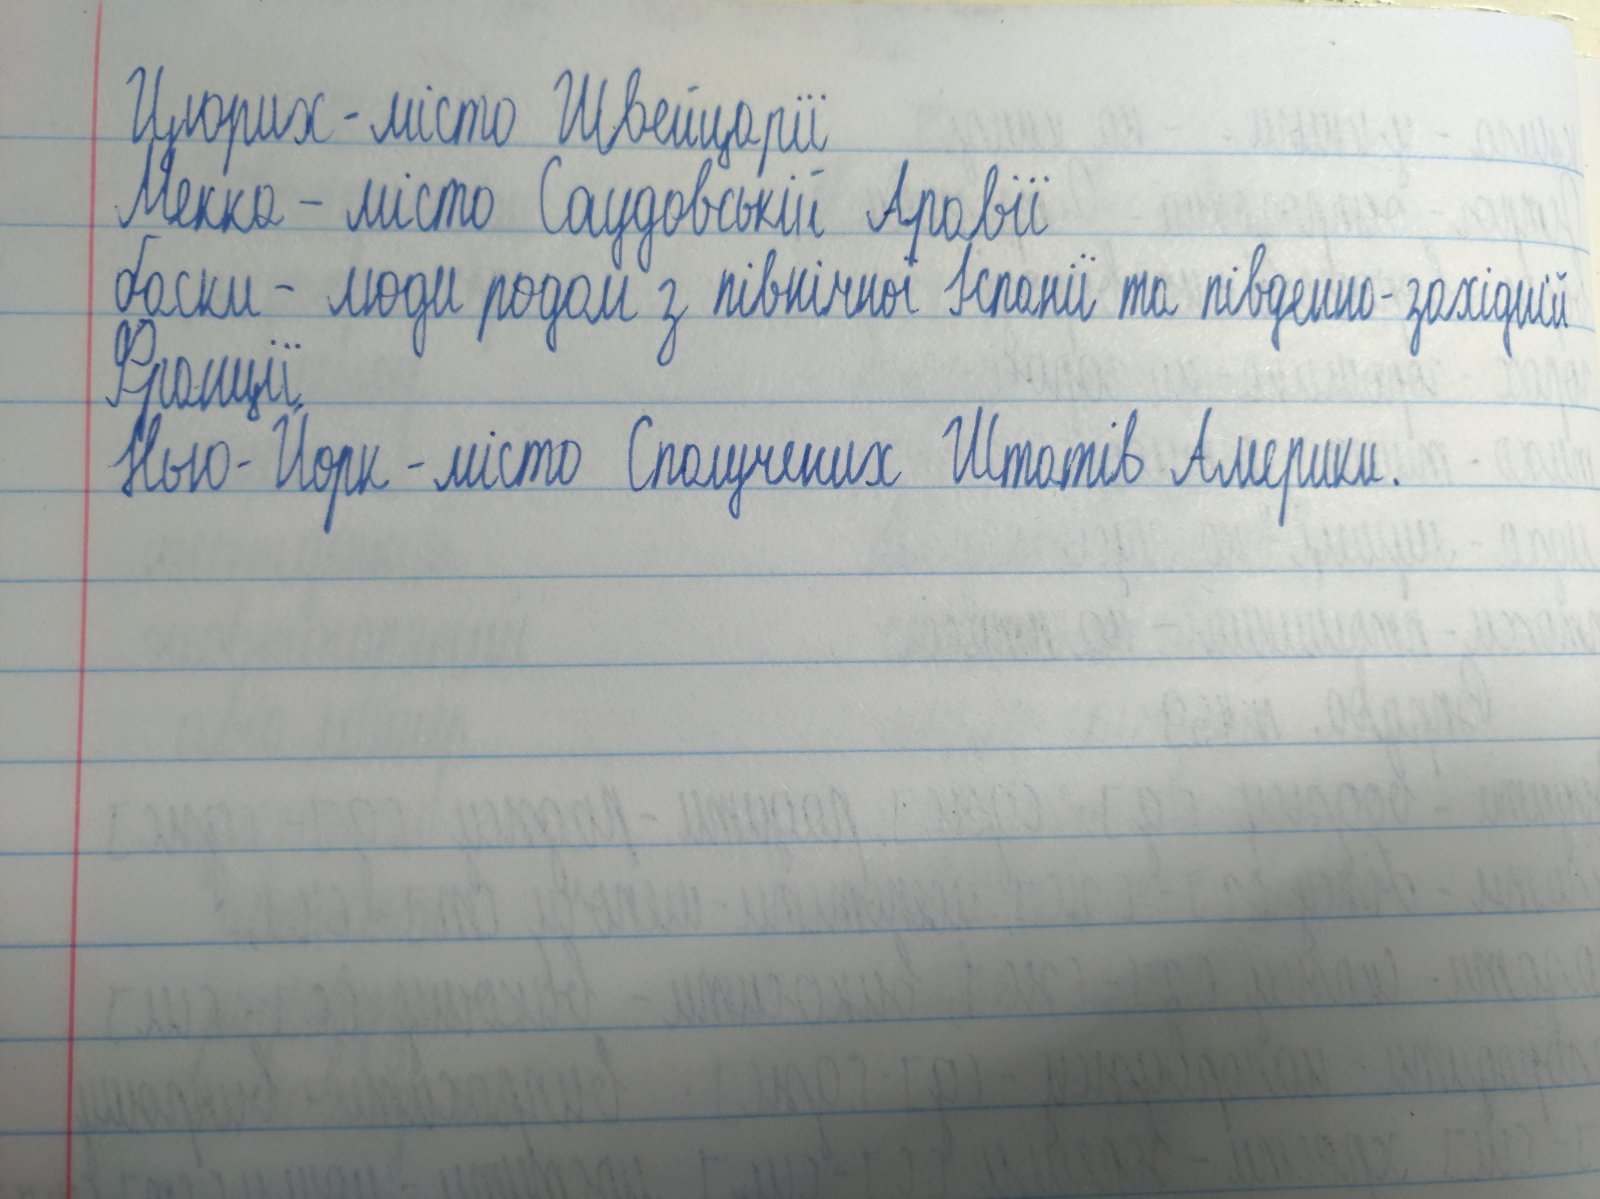 Цюрих - місто Швейцарії
Мекка - місто Саудовській Аравії
баски - люди родом з північної Іспанії та південно-західній
Франції.
Нью-Йорк - місто Сполучених Штатів Америки.